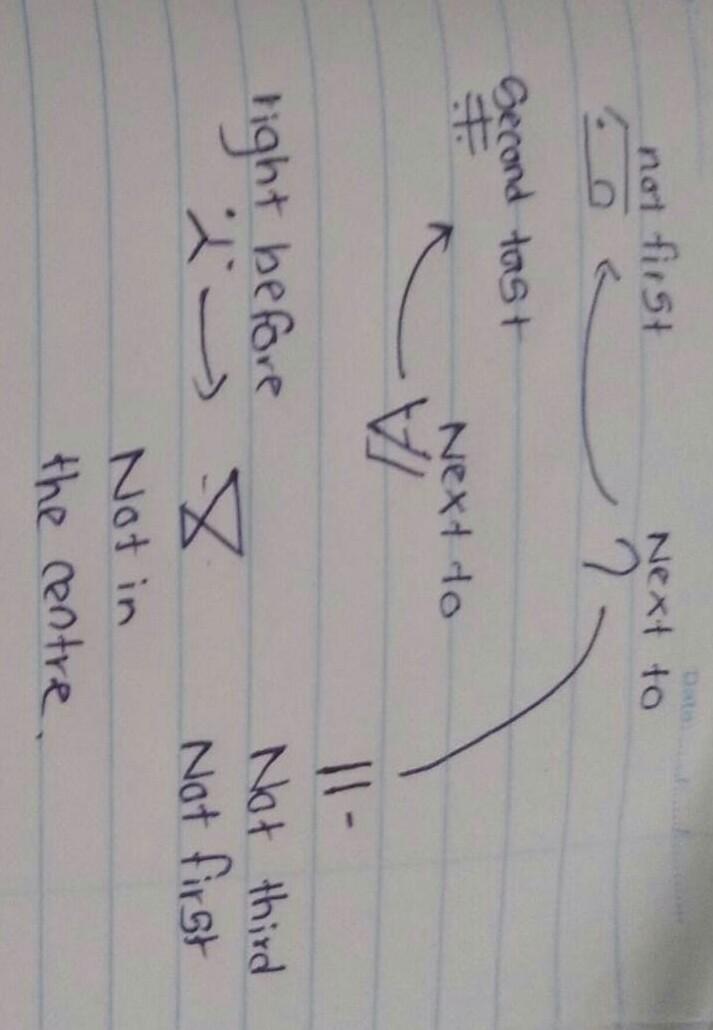 not first
Next to
?
Second last
Next to
right before
Not third
Not first
Not in
the centre.